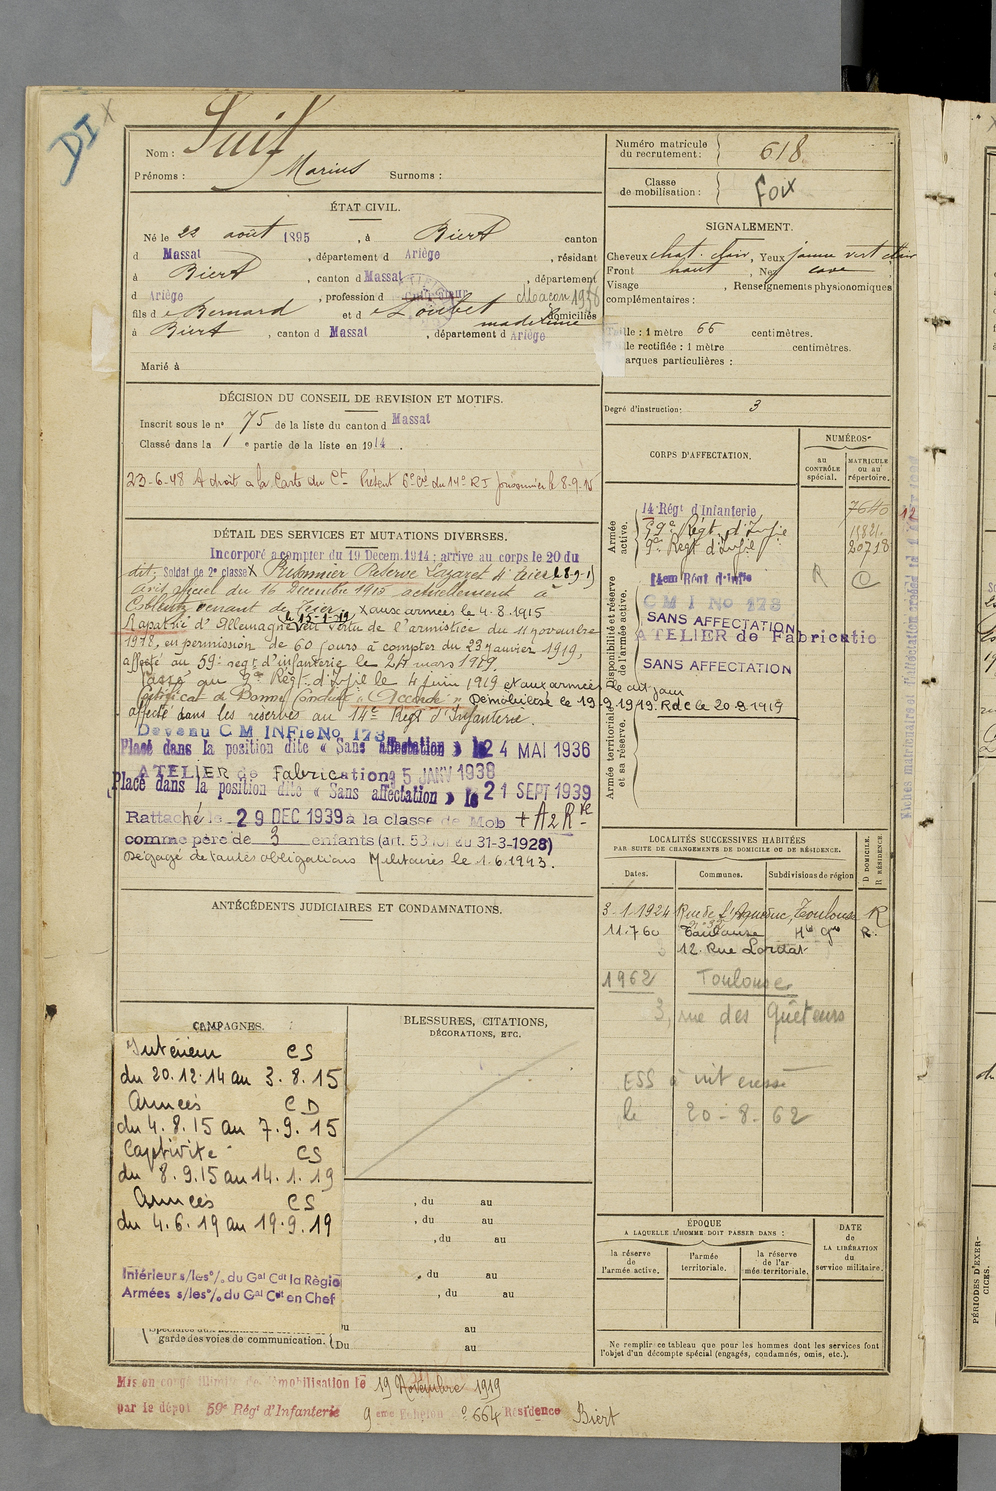 DI
Nom : Suif
Prénoms : Marius Surnoms :
ÉTAT CIVIL.
Né le 22 août 1895, à Biert canton
d Massat, département d Ariège, résidant
à Biert, canton d Massat, département
d Ariège, profession d Cultivateur Maçon 1938
fils d e Bernard et d e Loubet madeleine domiciliés
à Biert, canton d Massat, département d Ariège
Marié à
DÉCISION DU CONSEIL DE REVISION ET MOTIFS.
Inscrit sous le nº 75 de la liste du canton d Massat
Classé dans la 1 e partie de la liste en 1914.
23-6-48 A droit a la Carte du Ct Présent 6e Cie du 14e RI prisonnier le 8-9-15
DÉTAIL DES SERVICES ET MUTATIONS DIVERSES.
Incorporé a compter du 19 Décem. 1914 : arrive au corps le 20 du
dit, Soldat de 2e classe X Prisonnier Réserve Lazaret II Trier (8-9-15)
avis officiel du 16 Décembre 1915 actuellement à
Coblentz venant de Trier, X aux armées le 4.8.1915
Rapatrié d'Allemagne le 15-1-19 en vertu de l'armistice du 11 novembre
1918, en permission de 60 jours à compter du 23 janvier 1919,
affecté au 59e regt d'infanterie le 24 mars 1919.
Passé au 9e Régt d'Infie le 4 juin 1919 et aux armées le dit jour
Certificat de Bonne Conduite "Accordé" Démobilisé le 19.9.1919. Rdc le 20.9.1919
affecté dans les réserves au 14e Régt d'Infanterie.
Devenu C M INFie No 173
Placé dans la position dite « Sans Affectation » le 24 MAI 1936
ATELIER de Fabrication 15 JANV 1938
Placé dans la position dite « Sans affectation » le 21 SEPT 1939
Rattaché le 29 DEC 1939 à la classe de Mob + A 2 Rve
comme père de 3 enfants (art. 58 loi du 31-3-1928)
Dégagé de toutes obligations Militaires le 1.6.1943.
ANTÉCÉDENTS JUDICIAIRES ET CONDAMNATIONS.
CAMPAGNES.
Intérieur CS
du 20.12.14 au 3.8.15
Armées CD
du 4.8.15 au 7.9.15
Captivité CS
du 8.9.15 au 14.1.19
Armées CS
du 4.6.19 au 19.9.19
Intérieur s/les º/o du Gal Cdt la Régio
Armées s/les º/o du Gal Cdt en Chef
garde des voies de communication. Du au
BLESSURES, CITATIONS,
DÉCORATIONS, ETC.
, du au
, du au
, du au
, du au
, du au
Du au
Mis en congé illimité de démobilisation le 19 Novembre 1919
par le dépôt 59e Régt d'Infanterie 9 eme Echelon nº 664 Résidence Biert
Numéro matricule
du recrutement : 618
Classe
de mobilisation : Foix
SIGNALEMENT.
Cheveux chat. clair, Yeux jaune vert clair
Front haut, Nez cave
Visage , Renseignements physionomiques
complémentaires :
Taille : 1 mètre 66 centimètres.
Taille rectifiée : 1 mètre centimètres.
Marques particulières :
Degré d'instruction : 3
CORPS D'AFFECTATION.
NUMÉROS
au
CONTRÔLE
spécial.
MATRICULE
ou au
répertoire.
Armée
active.
14 Régt d'Infanterie 7640 12
59e Régt d'Infie
9e Régt d'Infie 20718
Disponibilité et réserve
de l'armée active.
14em Régt d'Infie R C
C M I No 173
SANS AFFECTATION
ATELIER de Fabricatio
SANS AFFECTATION
Armée territoriale
et sa réserve.
LOCALITÉS SUCCESSIVES HABITÉES
PAR SUITE DE CHANGEMENTS DE DOMICILE OU DE RÉSIDENCE.
Dates. Communes. Subdivisions de région
D DOMICILE.
R RÉSIDENCE
3-1-1924 Rue de l'Aqueduc, Toulouse R
11.7.60 Toulouse Hte Gne R.
12 Rue Lordat
1962 Toulouse
3, rue des Quêteurs
le 20-8-62
ÉPOQUE
A LAQUELLE L'HOMME DOIT PASSER DANS :
la réserve
de
l'armée active.
l'armée
territoriale.
la réserve
de l'ar
mée territoriale.
DATE
de
LA LIBÉRATION
du
service militaire.
Ne remplir ce tableau que pour les hommes dont les services font
l'objet d'un décompte spécial (engagés, condamnés, omis, etc.).
PÉRIODES D'EXER-
CICES.